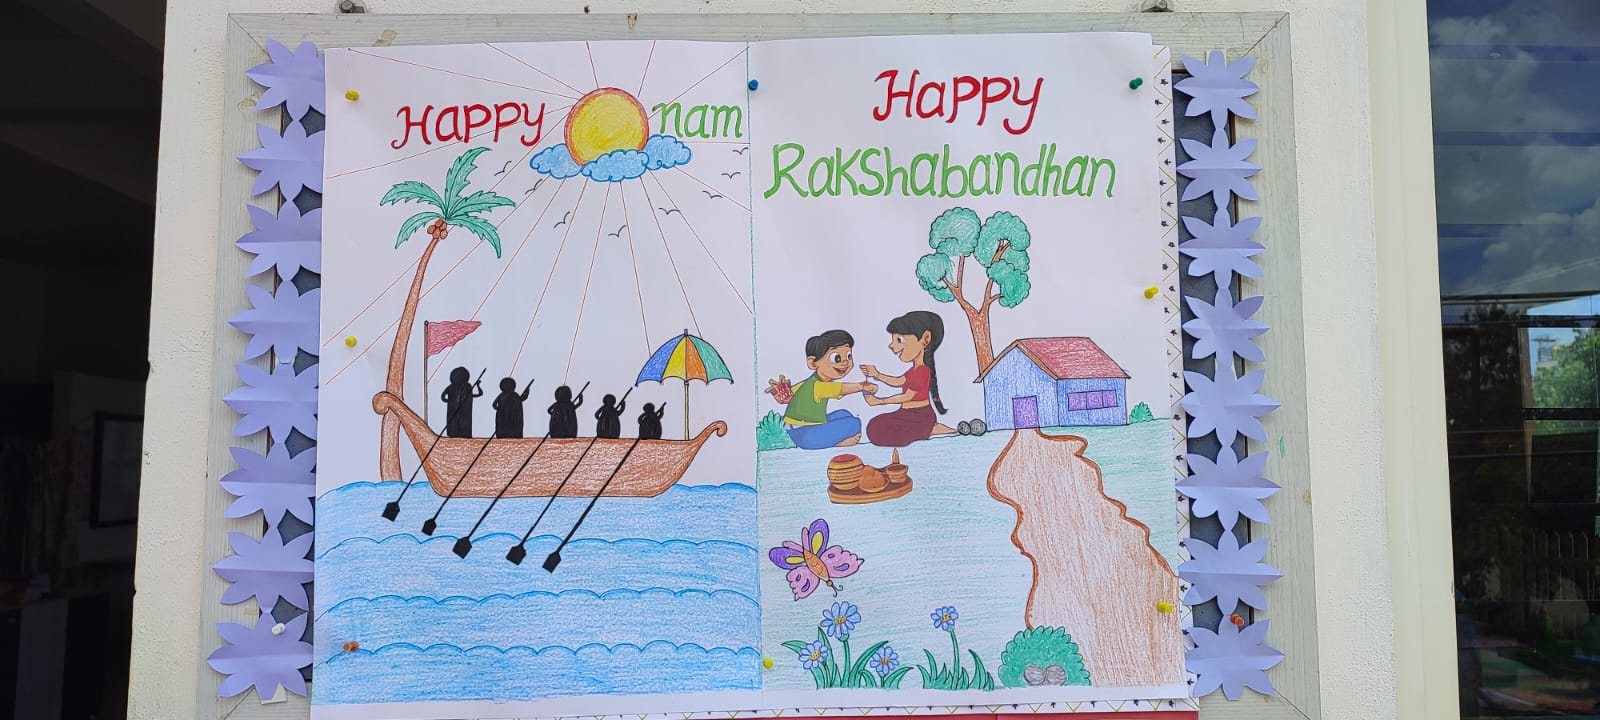 Happy nam
Happy
Rakshabandhan